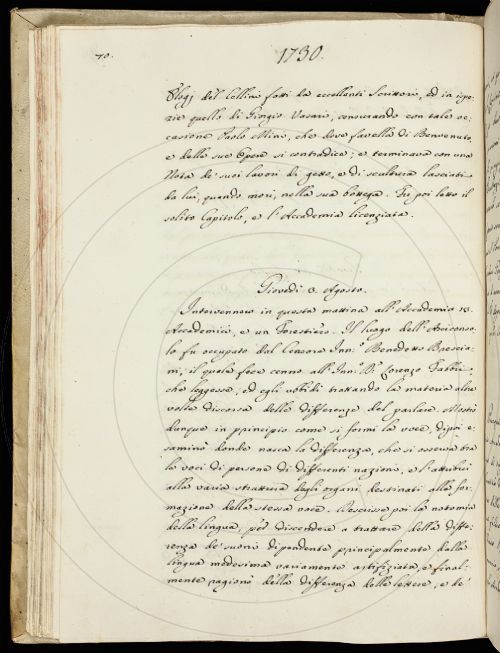 70.
1730.
Elogj del Cellini fatti da eccellenti Scrittori, ed in ispe-
zie quello di Giorgio Vasari, censurando con tale oc-
casione Paolo Mini, che dove favella di Benvenuto,
e delle sue Opere si contradice; e terminava con una
Nota de' suoi lavori di getto, e di scultura lasciati
da lui, quando morì, nella sua bottega. Fu poi letto il
solito Capitolo, e l'Accademia licenziata.
Giovedì 3. Agosto.
Intervennero in questa mattina all'Accademia 13.
Accademici, e un Forestiero. Il luogo dell'Arciconso-
lo fu occupato dal Censore Inn.º Benedetto Brescia-
ni, il quale fece cenno all'Inn. Lorenzo Fabbri,
che leggesse, ed egli ubbidì trattando la materia altra
volta discorsa della differenza del parlare. Mostrò
dunque in principio come si formi la voce, dipoi e-
saminò donde nasca la differenza, che si osserva tra
le voci di persone di differenti nazioni, e l'attribuì
alla varia struttura degli organi destinati alla for-
mazione della stessa voce. Descrisse poi la notomia
della lingua, per discendere a trattare della diffe-
renza de' suoni dipendente principalmente dalla
lingua medesima variamente artifiziata, e final-
mente ragionò della differenza delle lettere, e de'